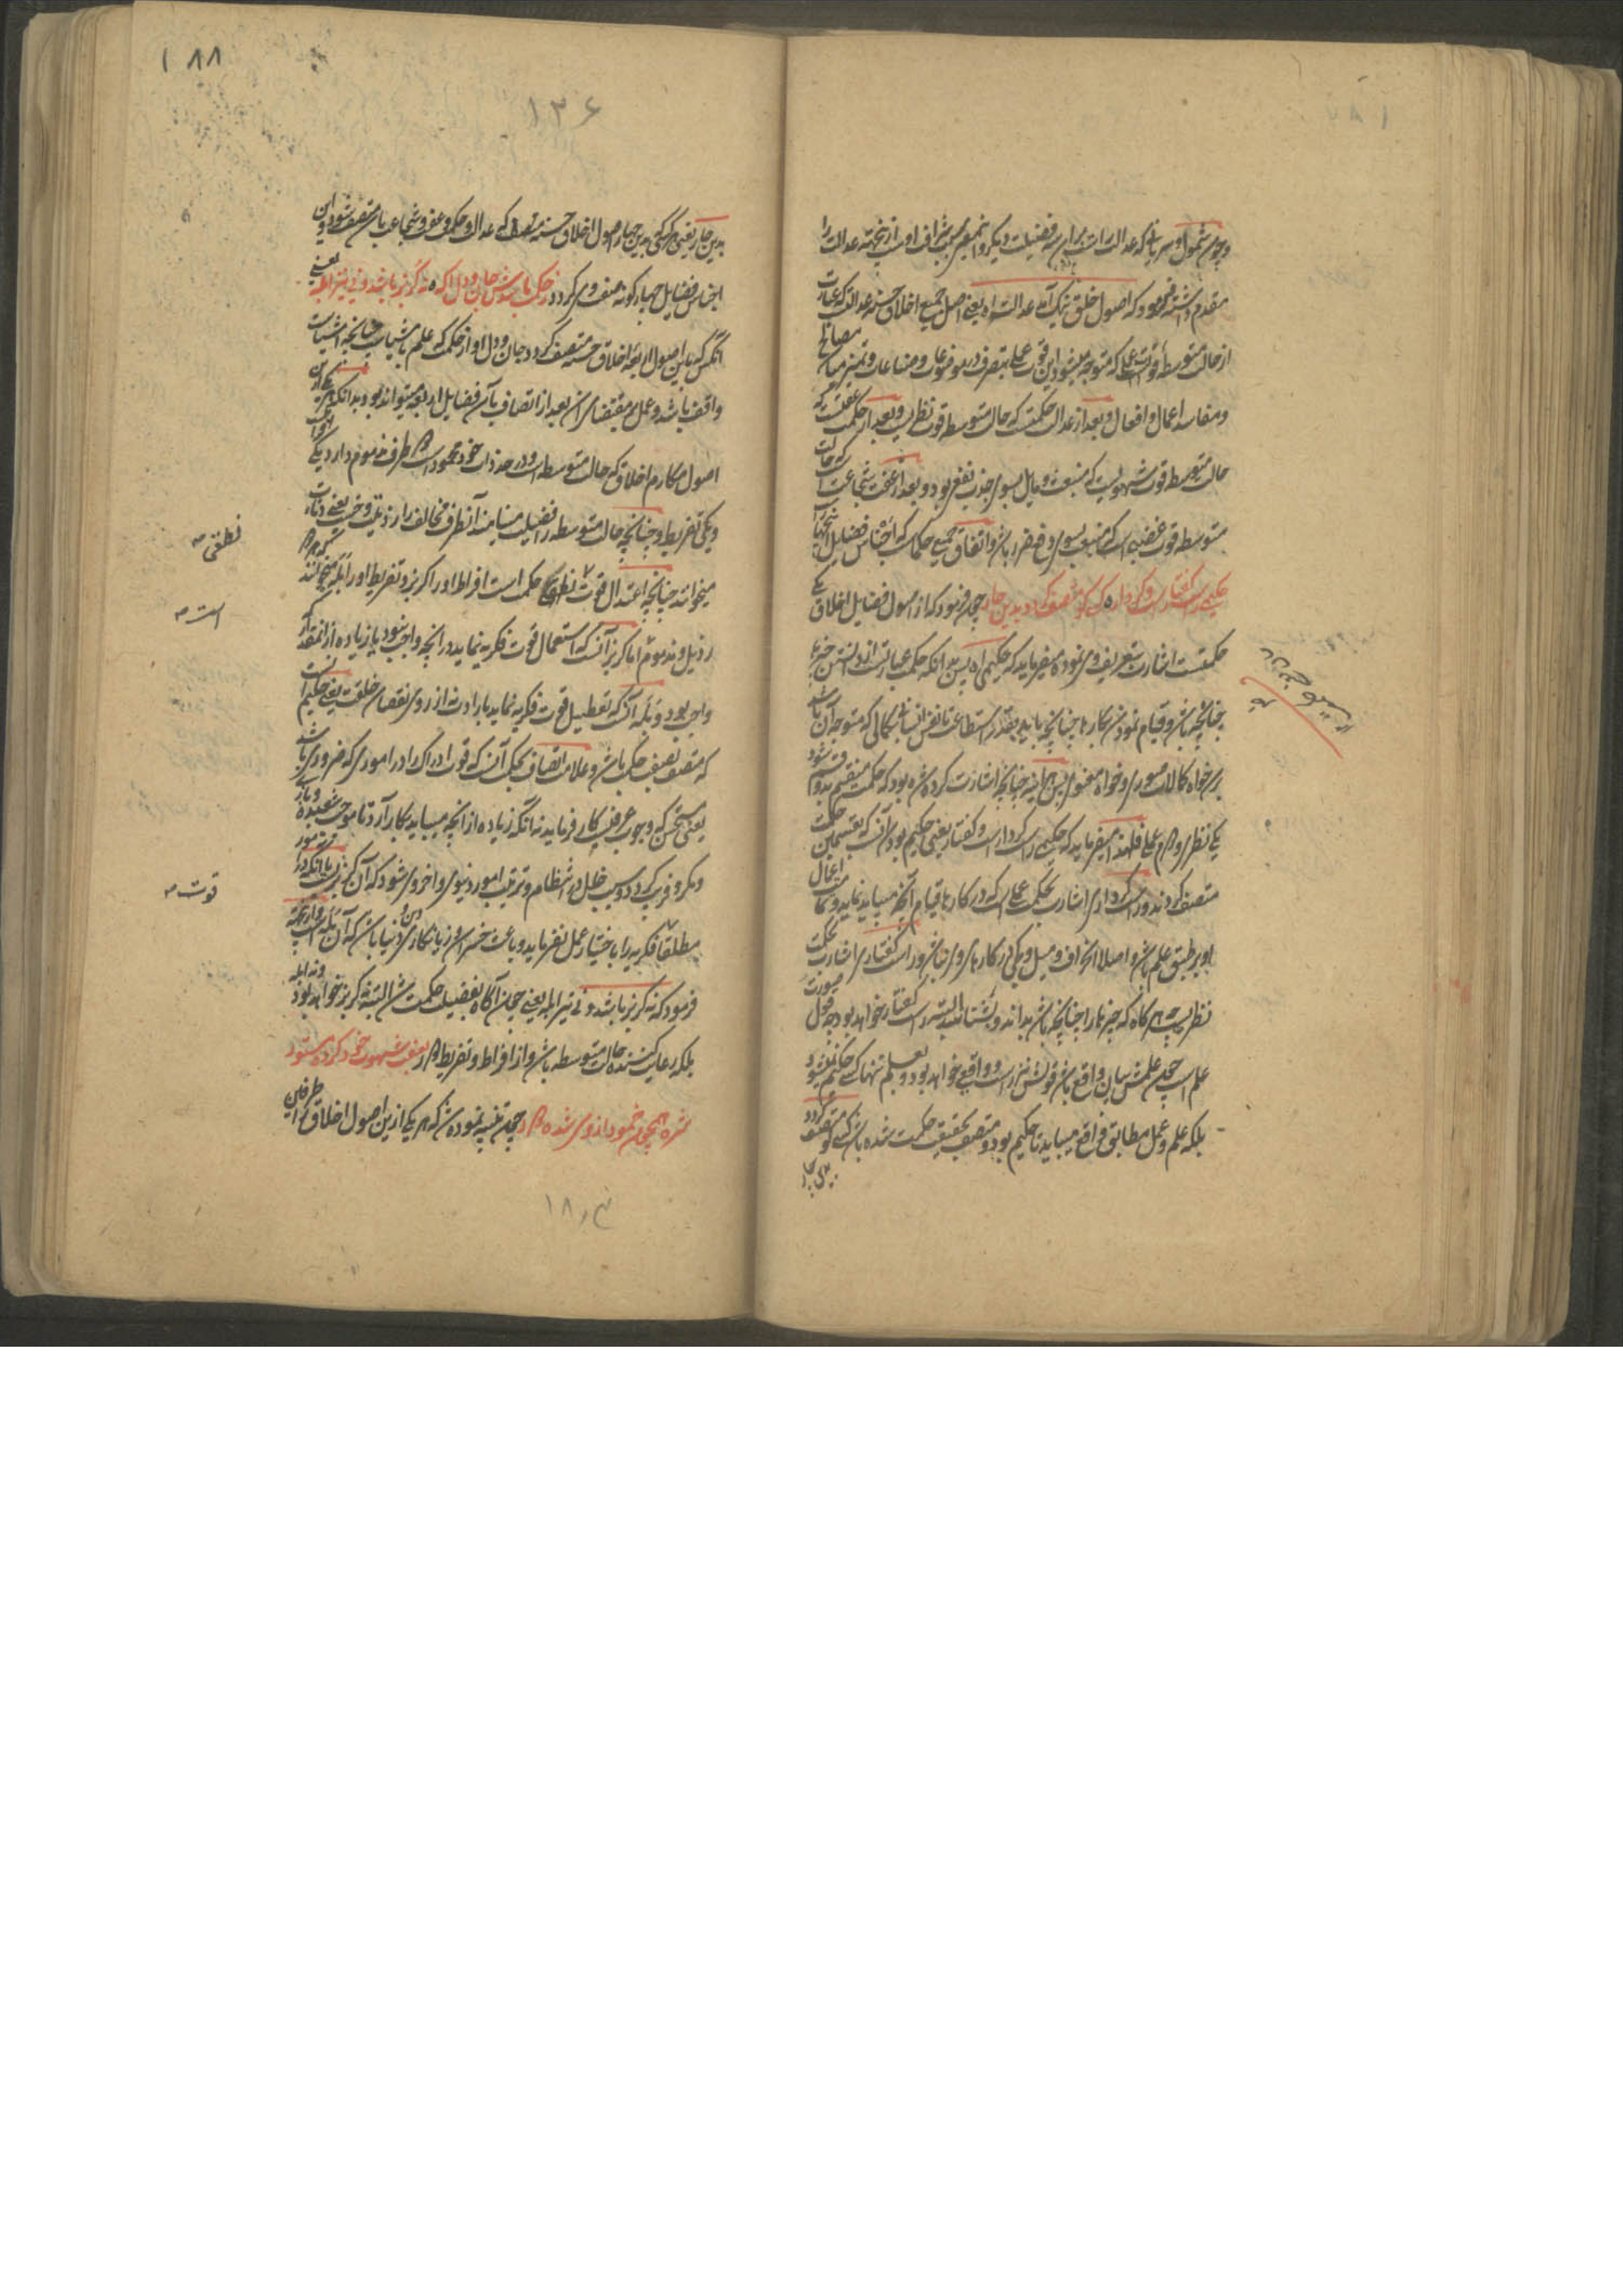 و چون شمول و سریانی که عدالت راست بران سه فضیلت دیگر و از نجهته عدالت را
مقدم داشته فرمود که اصول خلق نیک آمد عدالت یعنی اصل جمیع اخلاق حسنه عدالت که عبارت
از حالت متوسطه قوت عملی که متوجه میشود این قوت عملی بتصرف در موضوعات و صناعات و تمیز میان مصالح
و مفاسد اعمال و افعال و بعد از عدالت حکمتست که حالت متوسطه قوت نظریست و بعد از حکمت عفتست که
حالت متوسطه قوت شهویست که منبعث و مایل بسوی جذب نفع بود و بعد از عفت شجاعت است که حالت
متوسطه قوت غضبی است که منبعث بسوی دفع ضرر باشد و اتفاق جمیع حکماست که اجناس فضایل
حکیمی راست گفتار راست کردار کسی کو متصف گردد بدین چار چون فرمود که از اصول فضایل اخلاق یکی
حکمتست اشارت بتعریف وی نموده میفرماید که حکیمی بدانکه حکمت عبارت از دانستن چیزها
چنانچه باشد و قیام نمودن بکارها چنانچه باید بقدر استطاعت تا نفس انسانی بکمالی که متوجه آن باشد
برسد خواه کمالات صوری و خواه معنوی چنانچه اشارت کرده شده بود که حکمت منقسم بدو قسم میشود
یکی نظری و دوم عملی فلهذا میفرماید که حکیمی راست کردار راست گفتار یعنی حکیم بود آنست که بقسمین حکمت
متصف گردند و راست کرداری اشارت بحکمت عملی است که در کارها قیام آنچه میباید نماید و تمامت اعمال
او بر طبق علم باشد و اصلا انحراف و میل و کجی در کارهای وی نباشد و راست گفتاری اشارت بحکمت
نظریست هرگاه که چیزها را چنانچه باشد بداند و بشناسد البته راست گفتار خواهد بود چه قول صورت
علم است چون علمش بیان واقع باشد قولش نیز راست و واقعی خواهد بود و بعلم تنها کسی حکیم نمیشود
بلکه علم و عمل مطابق واقع میباید تا حکیم بود و متصف بحقیقت حکمت شده باشد کسی کو متصف گردد
بدین چار یعنی هر کسی بدین چهار اصول اخلاق حسنه متصف که عدالت و حکمت و عفت و شجاعت با متصف شود و این
اجناس فضایل چهارگونه صفت وی گردد ز حکمت باشدش جان و دل آگه نه گربز باشد و نی نیز ابله یعنی
آنکس که باین اصول اربعه اخلاق حسنه متصف گردد جان و دل او از حکمت که علم باشیاست چنانچه اشیاست
واقف باشد و عمل بمقتضای آن بعد از اتصاف بآن فضایل اربعه میتواند بود بدانکه هر یکی از این
اصول مکارم اخلاق که حالت متوسطه است و در حد ذات خود محمود است دو طرف مذموم دارد یکی افراط
و یکی تفریط و چنانچه حالت متوسطه را فضیلت مینامند آن طرف مخالف را رذیلت و خسیس یعنی دنائت
میخوانند چنانچه اعتدال قوت نطقی حکمت است افراط او را گربز و تفریط او را ابله میخوانند که هر دو
رذیل و مذموم اما گربز آنست که استعمال قوت فکریه نماید در آنچه واجب نبود یا زیاده از آنمقدار که
واجب بود و بله آنست که تعطیل قوت فکریه نماید بارادت نه از روی نقصان خلقت یعنی حکیم آنست
که متصف بصفت حکمت باشد و علامت اتصاف بحکمت آنست که قوت ادراک را در اموری که ضروری باشد
یعنی مستحسن که وجوب عرفیست کار فرماید نه آنکه زیاده از آنچه میباید بکار آرد تا موجب شعبده و باز
و مکر و فریب گردد و سبب خلل در انتظام و ترتیب امور دنیوی و اخروی شود که آن گربزیست نه آنکه در امور
مطلقا فکریه را باختیار عمل نفرماید و باعث خسران و زیانکاری دین و دنیا باشد که آن بله است و از نجهته
فرمود که نه گربز باشد و نی نیز ابله یعنی چون آگاه بفضیلت حکمت شد البته نه گربز خواهد بود و نه ابله
بلکه رعایت کننده حالت متوسطه باشد و از افراط و تفریط دور بعفت شهوت خود کرده مستور
شره همچون خمود از وی شده دور چون تنبیه نموده شد که هر یکی از این اصول اخلاق را طرفین
نطقی
است
قوت
۱۸۸
۱۳۶